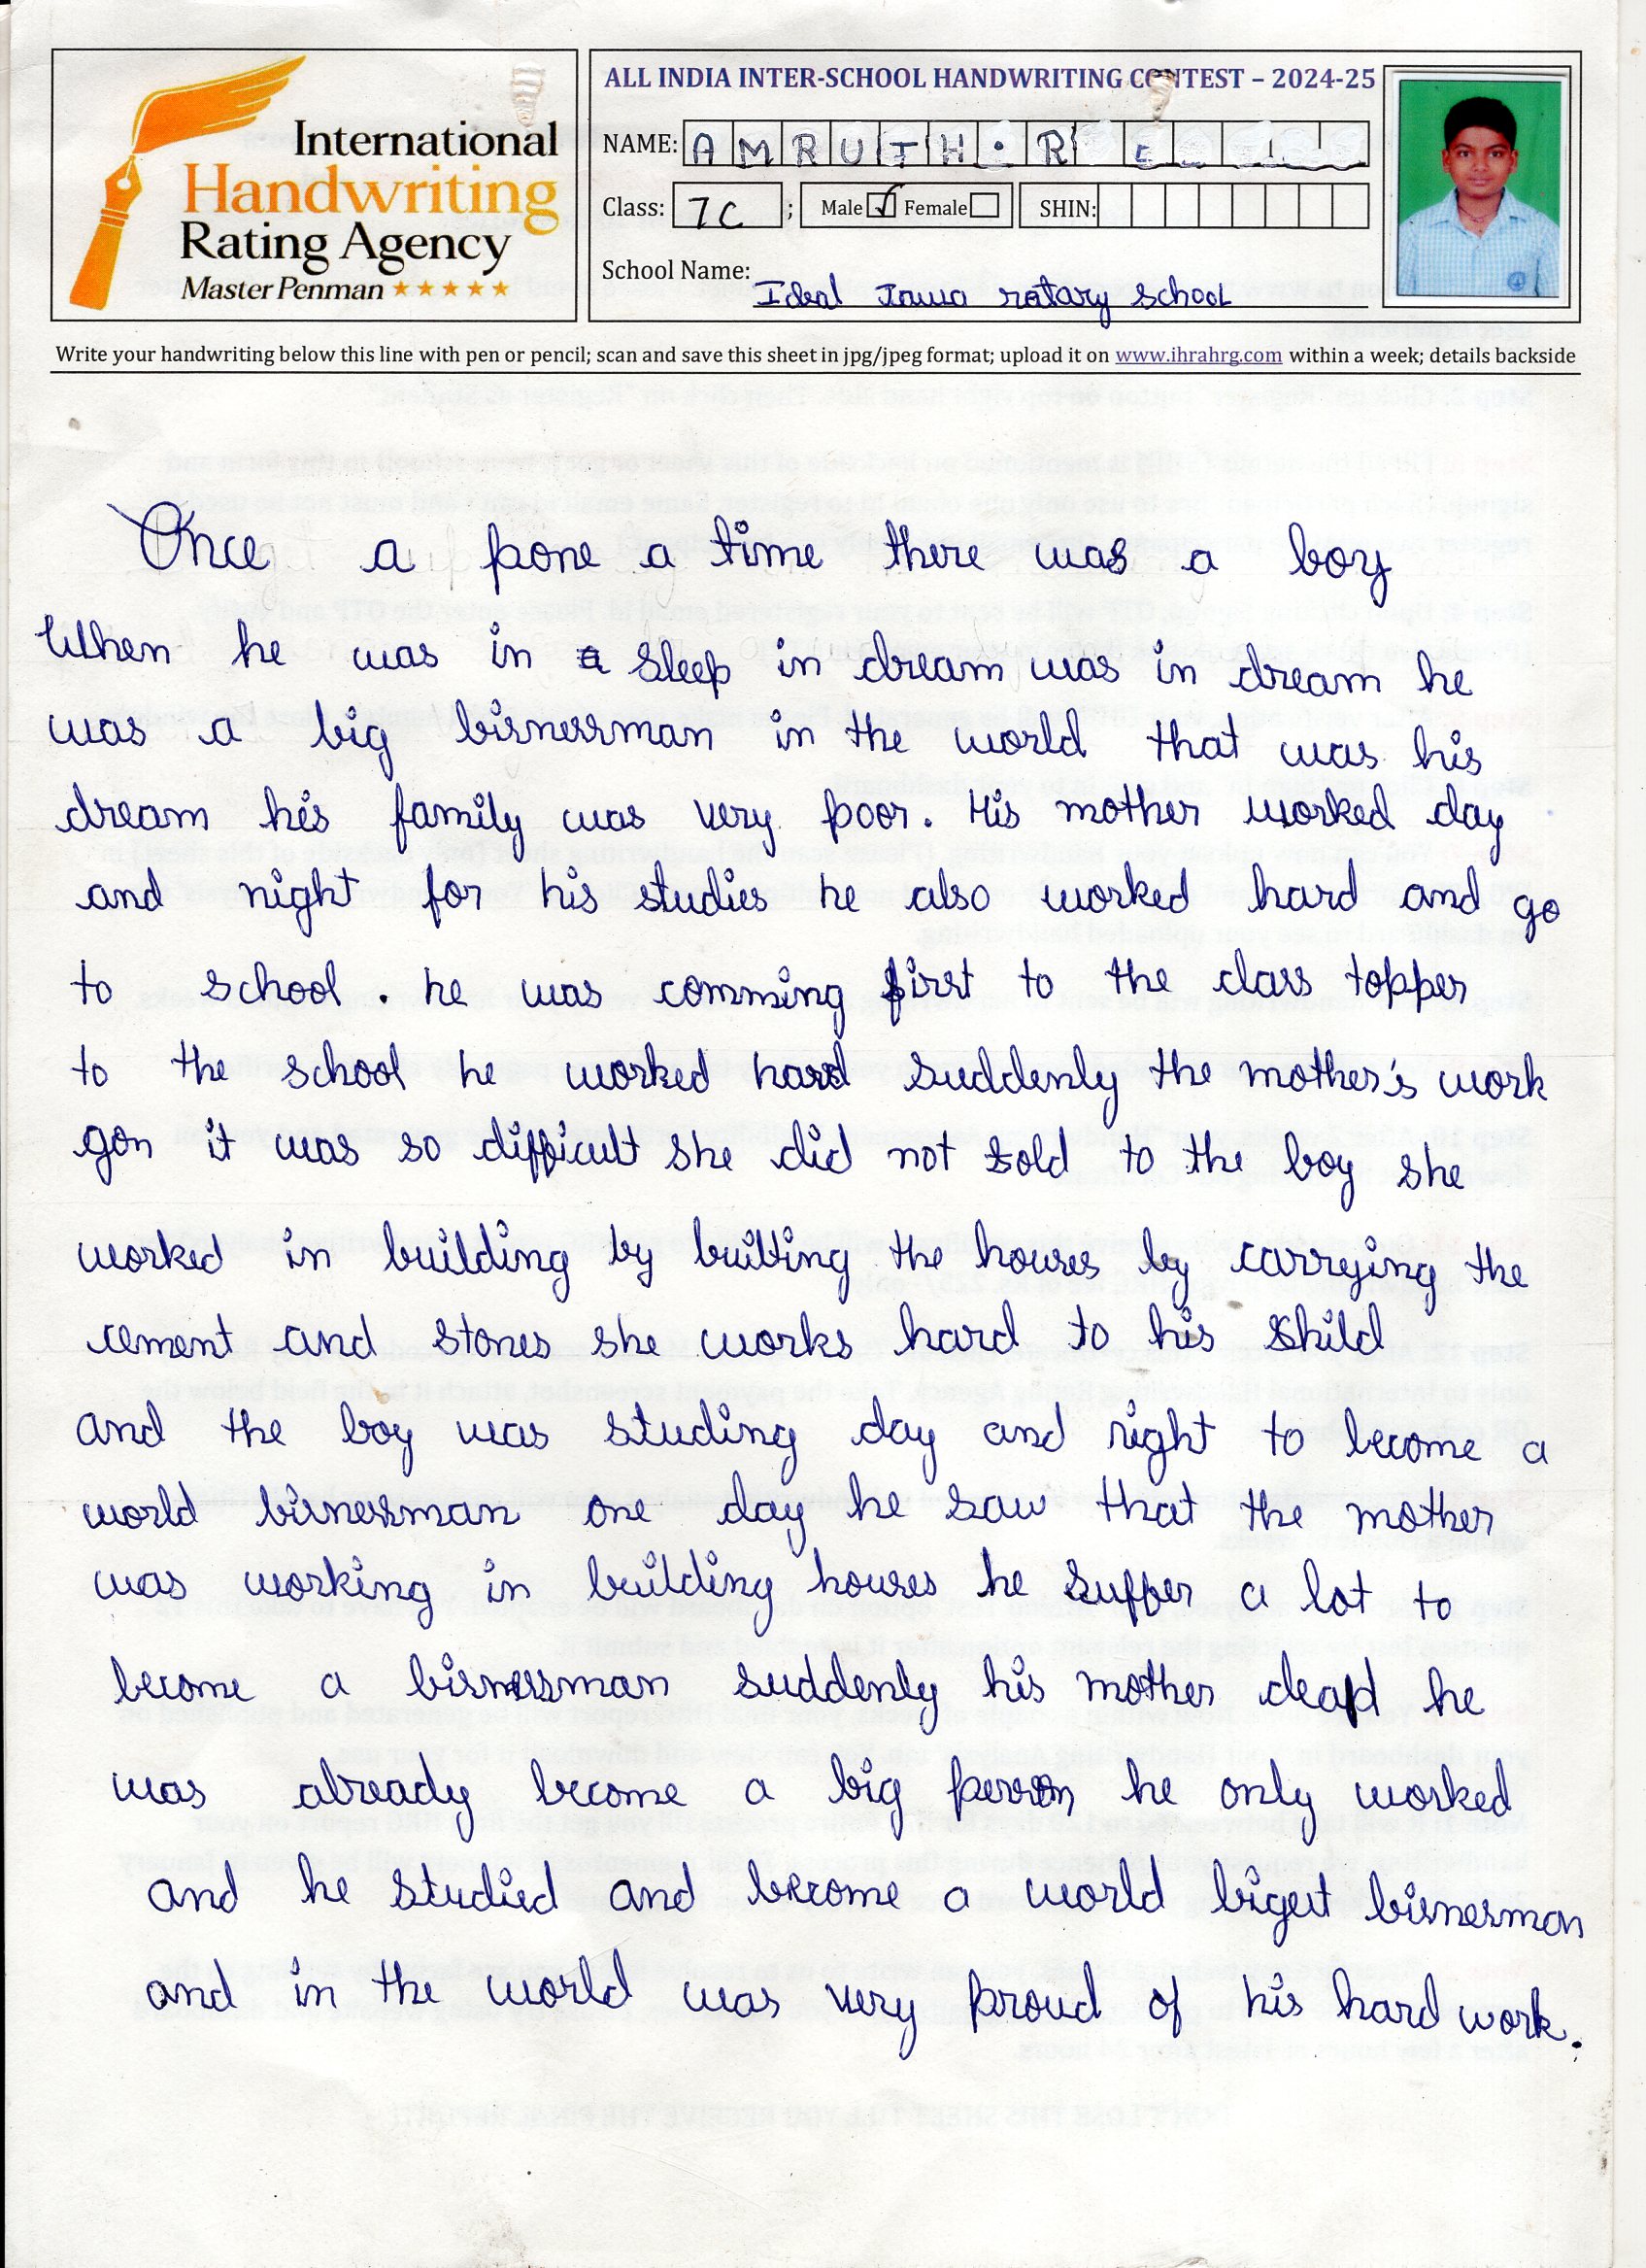 International
Handwriting
Rating Agency
Master Penman
ALL INDIA INTER-SCHOOL HANDWRITING CONTEST – 2024-25
NAME: AMRUTH.R
Class: 7C ; Male Female SHIN:
School Name: Ideal Jawa rotary school
Write your handwriting below this line with pen or pencil; scan and save this sheet in jpg/jpeg format; upload it on www.ihrahrg.com within a week; details backside
Once a pone a time there was a boy
When he was in sleep in dream was in dream he
was a big bisnessman in the world that was his
dream his family was very poor. His mother worked day
and night for his studies he also worked hard and go
to school. he was comming first to the class topper
to the school he worked hard suddenly the mother's work
gon it was so difficult she did not told to the boy she
worked in building by builting the houses by carrying the
cement and stones she works hard to his child
and the boy was studing day and night to become a
world bisnessman one day he saw that the mother
was working in building houses he suffer a lot to
become a bisnessman suddenly his mother dead he
was already become a big person he only worked
and he studied and become a world bigest bisnesman
and in the world was very proud of his hard work.